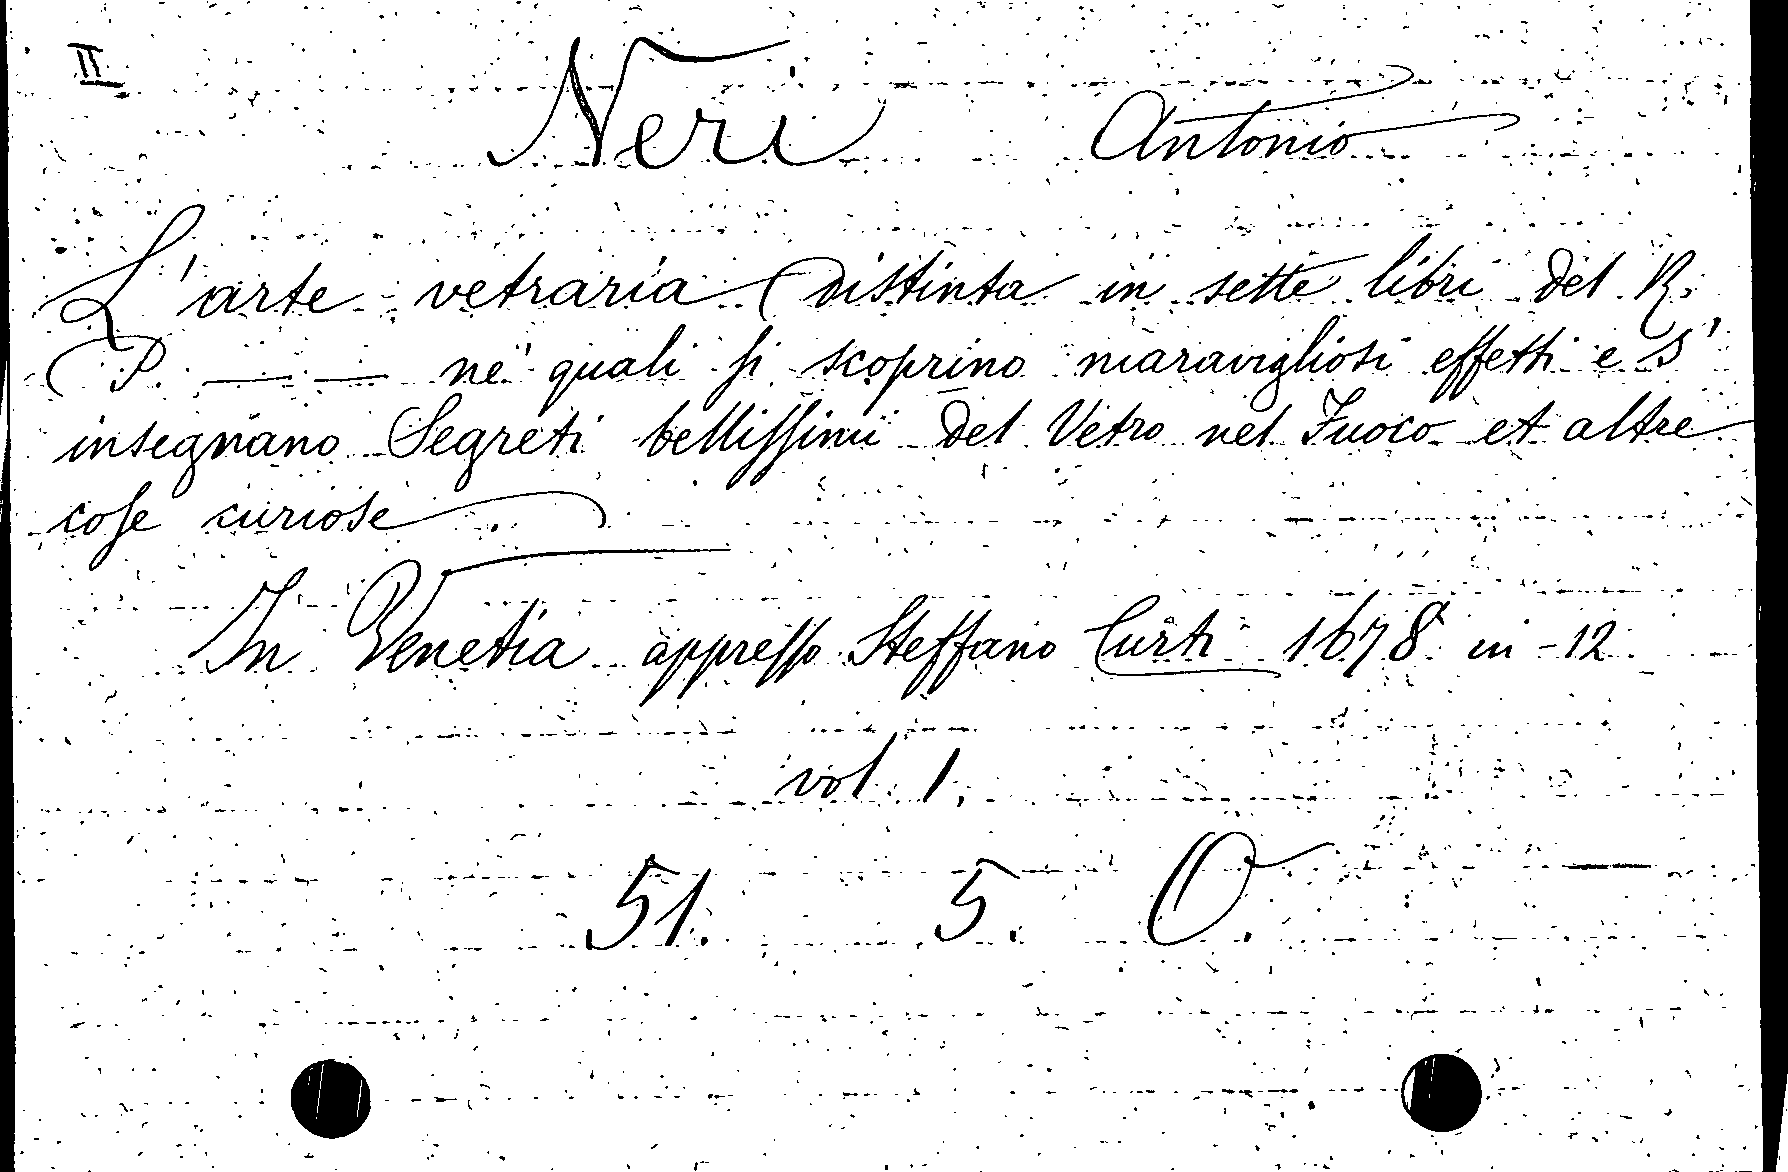 II
Neri Antonio
L'arte vetraria distinta in sette libri del R.
P. — — ne' quali si scoprino maravigliosi effetti e s'
insegnano Segreti bellissimi del Vetro nel Fuoco et altre
cose curiose
In Venetia appresso Steffano Curti 1678 in-12.
vol. 1.
51. 5. O.